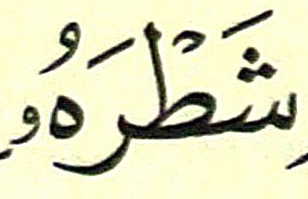 شَطْرَهُۥ